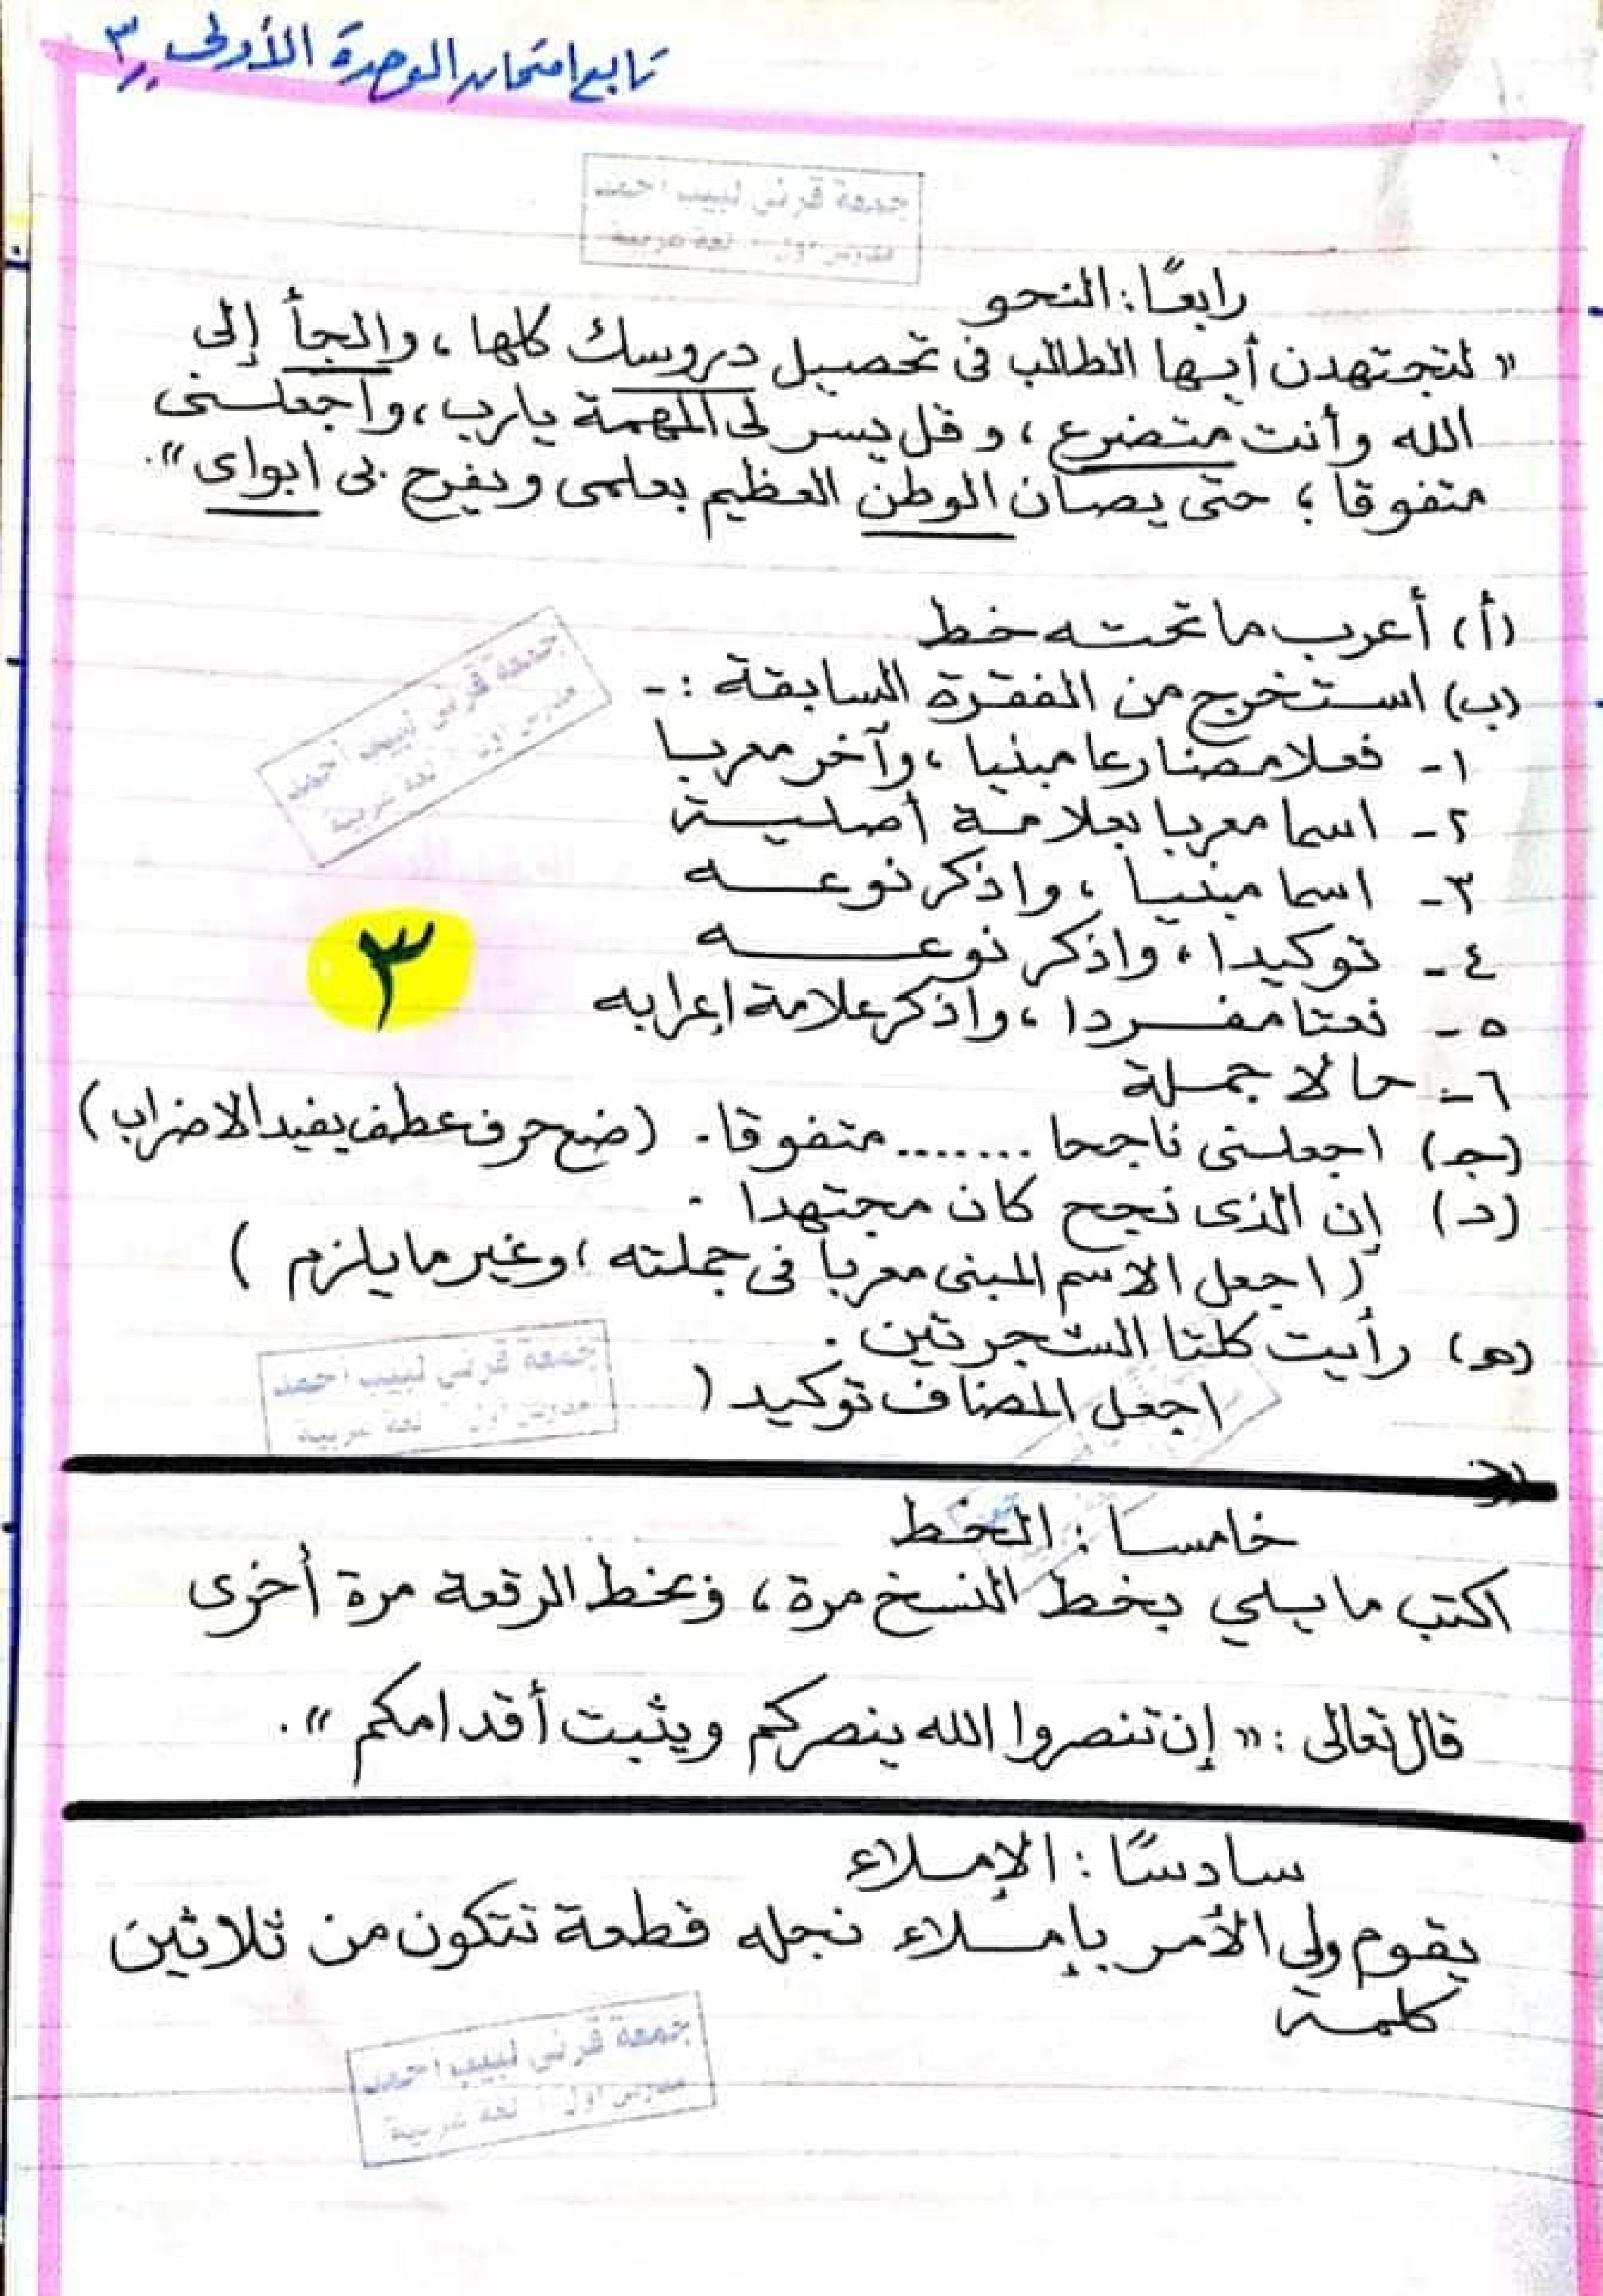 تابع امتحان الوحدة الأولى ٣
جمعة قرني لبيب احمد
مدرس اول : لغة عربية
رابعًا: النحو
" لتجتهدن أيها الطالب فى تحصيل دروسك كلها ، والجأ إلى
الله وأنت متضرع ، وقل يسر لى المهمة يارب ، واجعلنى
متفوقا ؛ حتى يصان الوطن العظيم بعلمى ويفرح بى ابواى ".
(أ) أعرب ما تحته خط
(ب) استخرج من الفقرة السابقة :-
١- فعلا مضارعا مبنيا ، وآخر معربا
٢- اسما معربا بعلامة أصلية
٣- اسما مبنيا ، واذكر نوعه
٤- توكيدا ، واذكر نوعه
٥- نعتا مفردا ، واذكر علامة إعرابه
٦- حالا جملة
(جـ) اجعلنى ناجحا ....... متفوقا . (ضع حرف عطف يفيد الاضراب)
(د) إن الذى نجح كان مجتهدا .
( اجعل الاسم المبنى معربا فى جملته ، وغير ما يلزم )
(هـ) رأيت كلتا الشجرتين .
اجعل المضاف توكيد (
جمعة قرني لبيب احمد
مدرس اول : لغة عربية
٣
جمعة قرني لبيب احمد
مدرس اول : لغة عربية
خامسا : الخط
اكتب ما يلي بخط النسخ مرة ، وبخط الرقعة مرة أخرى
قال تعالى : " إن تنصروا الله ينصركم ويثبت أقدامكم ".
سادسًا : الإملاء
يقوم ولي الأمر بإملاء نجله قطعة تتكون من ثلاثين
كلمة
جمعة قرني لبيب احمد
مدرس اول : لغة عربية